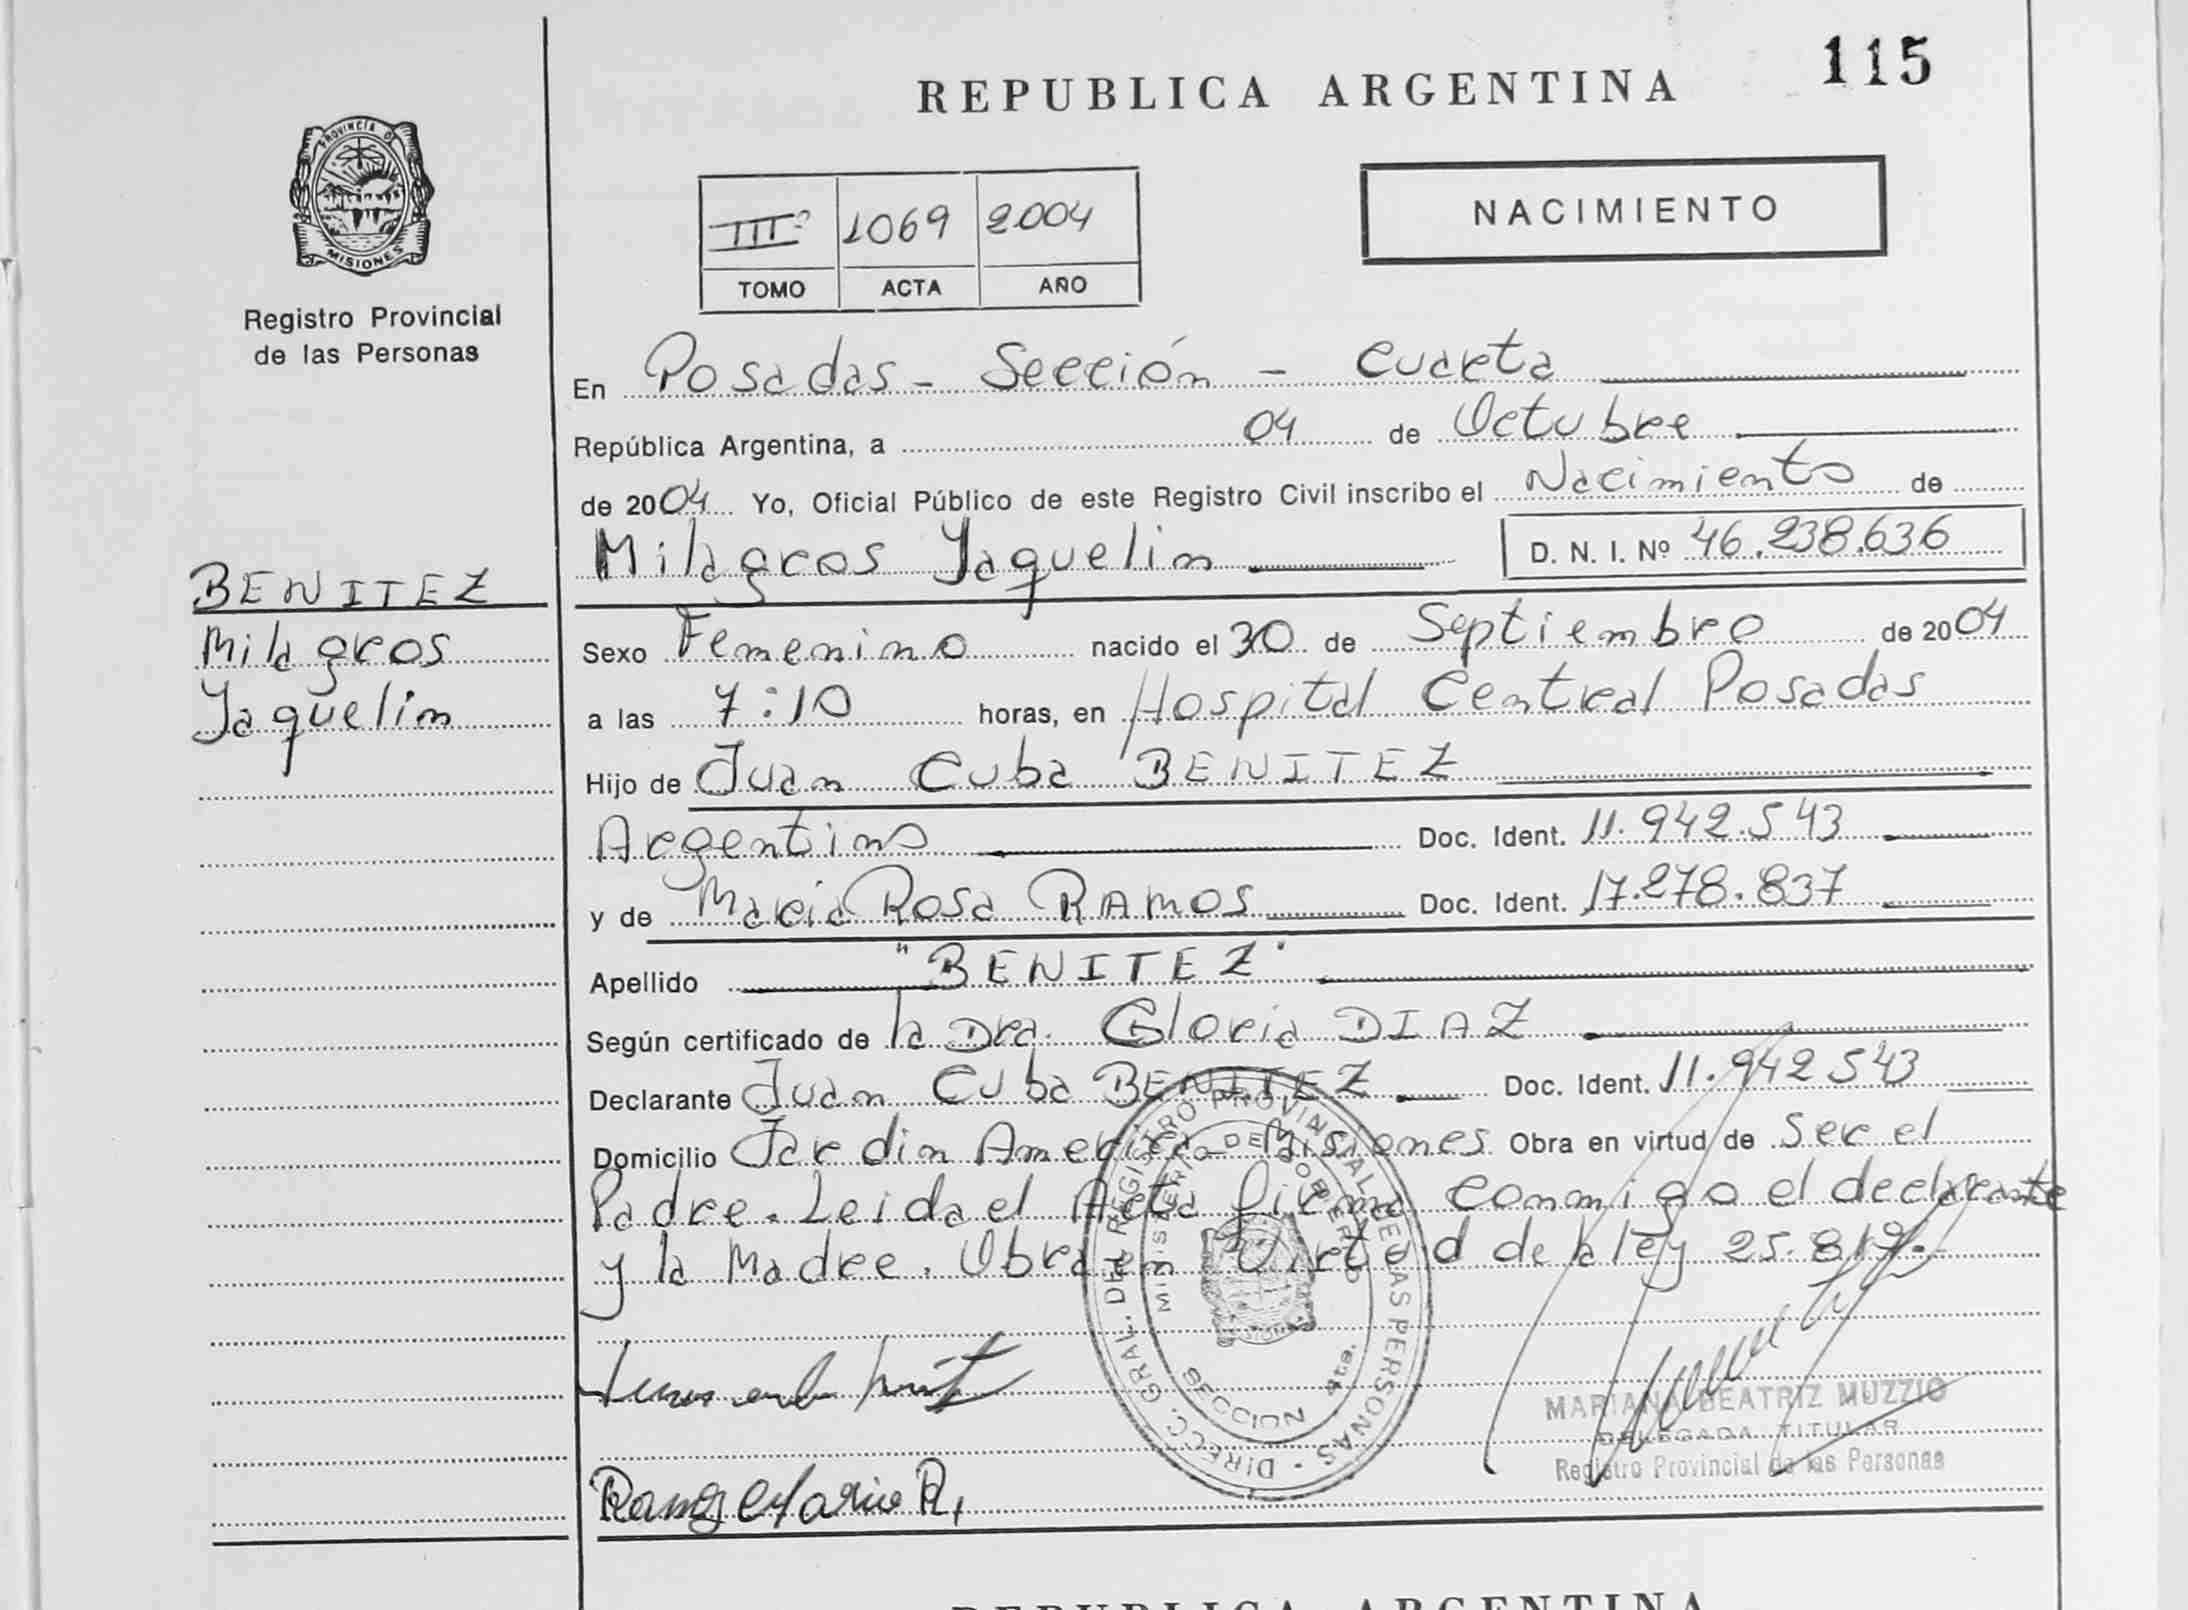 115
REPUBLICA ARGENTINA
PROVINCIA DE
MISIONES
Registro Provincial
de las Personas
III° 1069 2004
TOMO ACTA AÑO
NACIMIENTO
En Posadas - Sección - Cuarta
República Argentina, a 04 de Octubre
de 2004 Yo, Oficial Público de este Registro Civil inscribo el Nacimiento de
Milagros Yaquelin D. N. I. Nº 46.238.636
BENITEZ
Milagros
Yaquelin
Sexo Femenino nacido el 30 de Septiembre de 2004
a las 7:10 horas, en Hospital Central Posadas
Hijo de Juan Cuba BENITEZ
Argentino Doc. Ident. 11.942.543
y de Maria Rosa RAMOS Doc. Ident. 17.278.837
Apellido "BENITEZ"
Según certificado de la Dra. Gloria DIAZ
Declarante Juan Cuba BENITEZ Doc. Ident. 11.942543
Domicilio Jardin America - Misiones Obra en virtud de Ser el
Padre. Leida el Acta firma conmigo el declarante
y la Madre. Obra en Virtud de la ley 25.819.
DIRECC. GRAL. DEL REGISTRO PROVINCIAL DE LAS PERSONAS
MINISTERIO DE GOBIERNO
SECCION 4ta.
MARIANA BEATRIZ MUZZIO
DELEGADA TITULAR
Registro Provincial de las Personas
Ramos Maria R.
REPUBLICA ARGENTINA